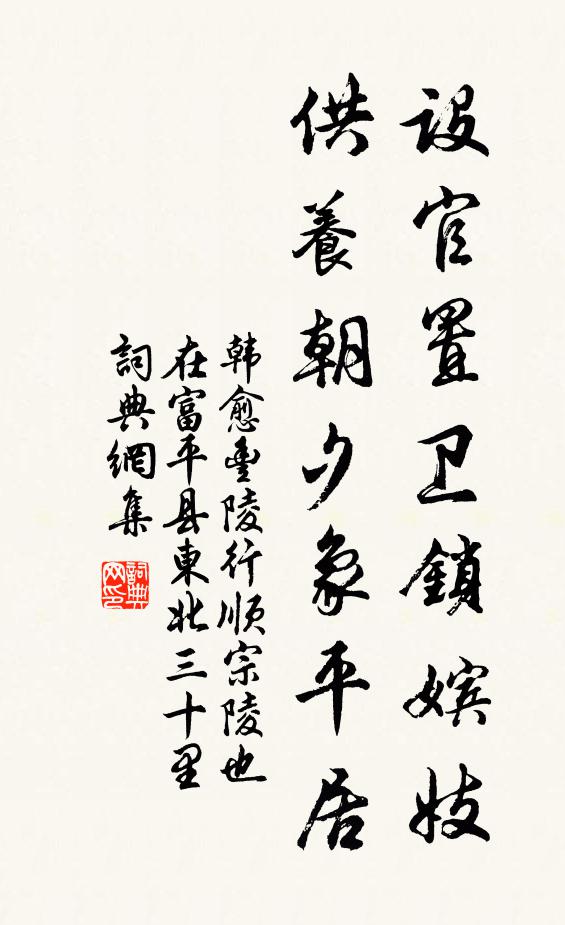 設官置卫鎖嬪妓
供養朝夕象平居
韩愈豐陵行順宗陵也
在富平县東北三十里
詞典網集
詞典
网印